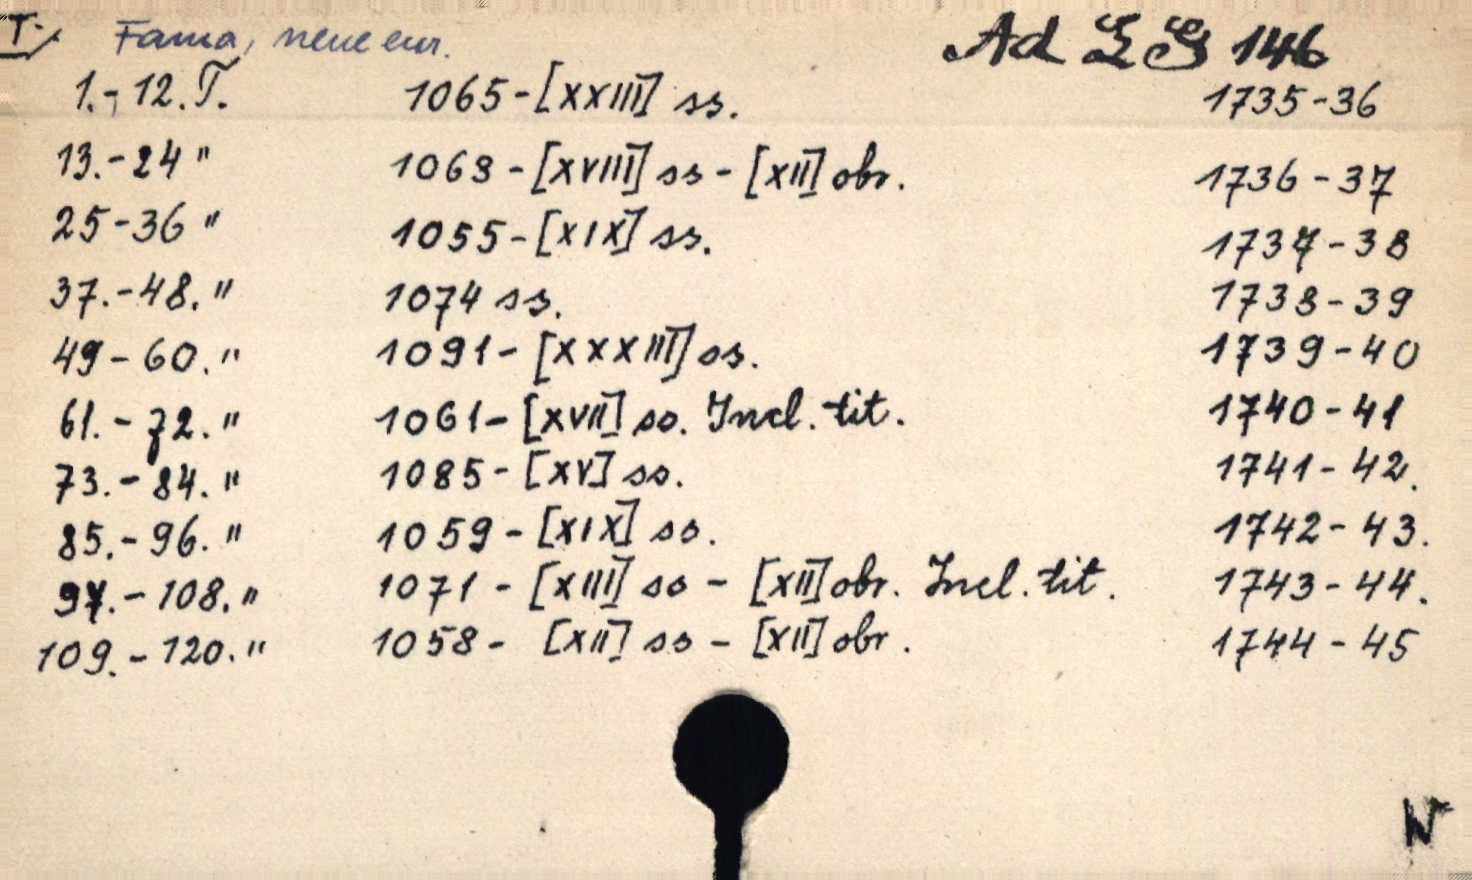 T. Fama, neue eur. Ad L G 146
1.-12. T. 1065-[XXIII] ss. 1735-36
13.-24 " 1068-[XVIII] ss - [XII] obr. 1736-37
25-36 " 1055-[XIX] ss. 1737-38
37.-48. " 1074 ss. 1738-39
49-60. " 1091-[XXXIII] ss. 1739-40
61.-72. " 1061-[XVII] ss. Incl. tit. 1740-41
73.-84. " 1085-[XV] ss. 1741-42.
85.-96. " 1059-[XIX] ss. 1742-43.
97.-108. " 1071-[XIII] ss - [XII] obr. Incl. tit. 1743-44.
109.-120. " 1058- [XII] ss - [XII] obr. 1744-45
N